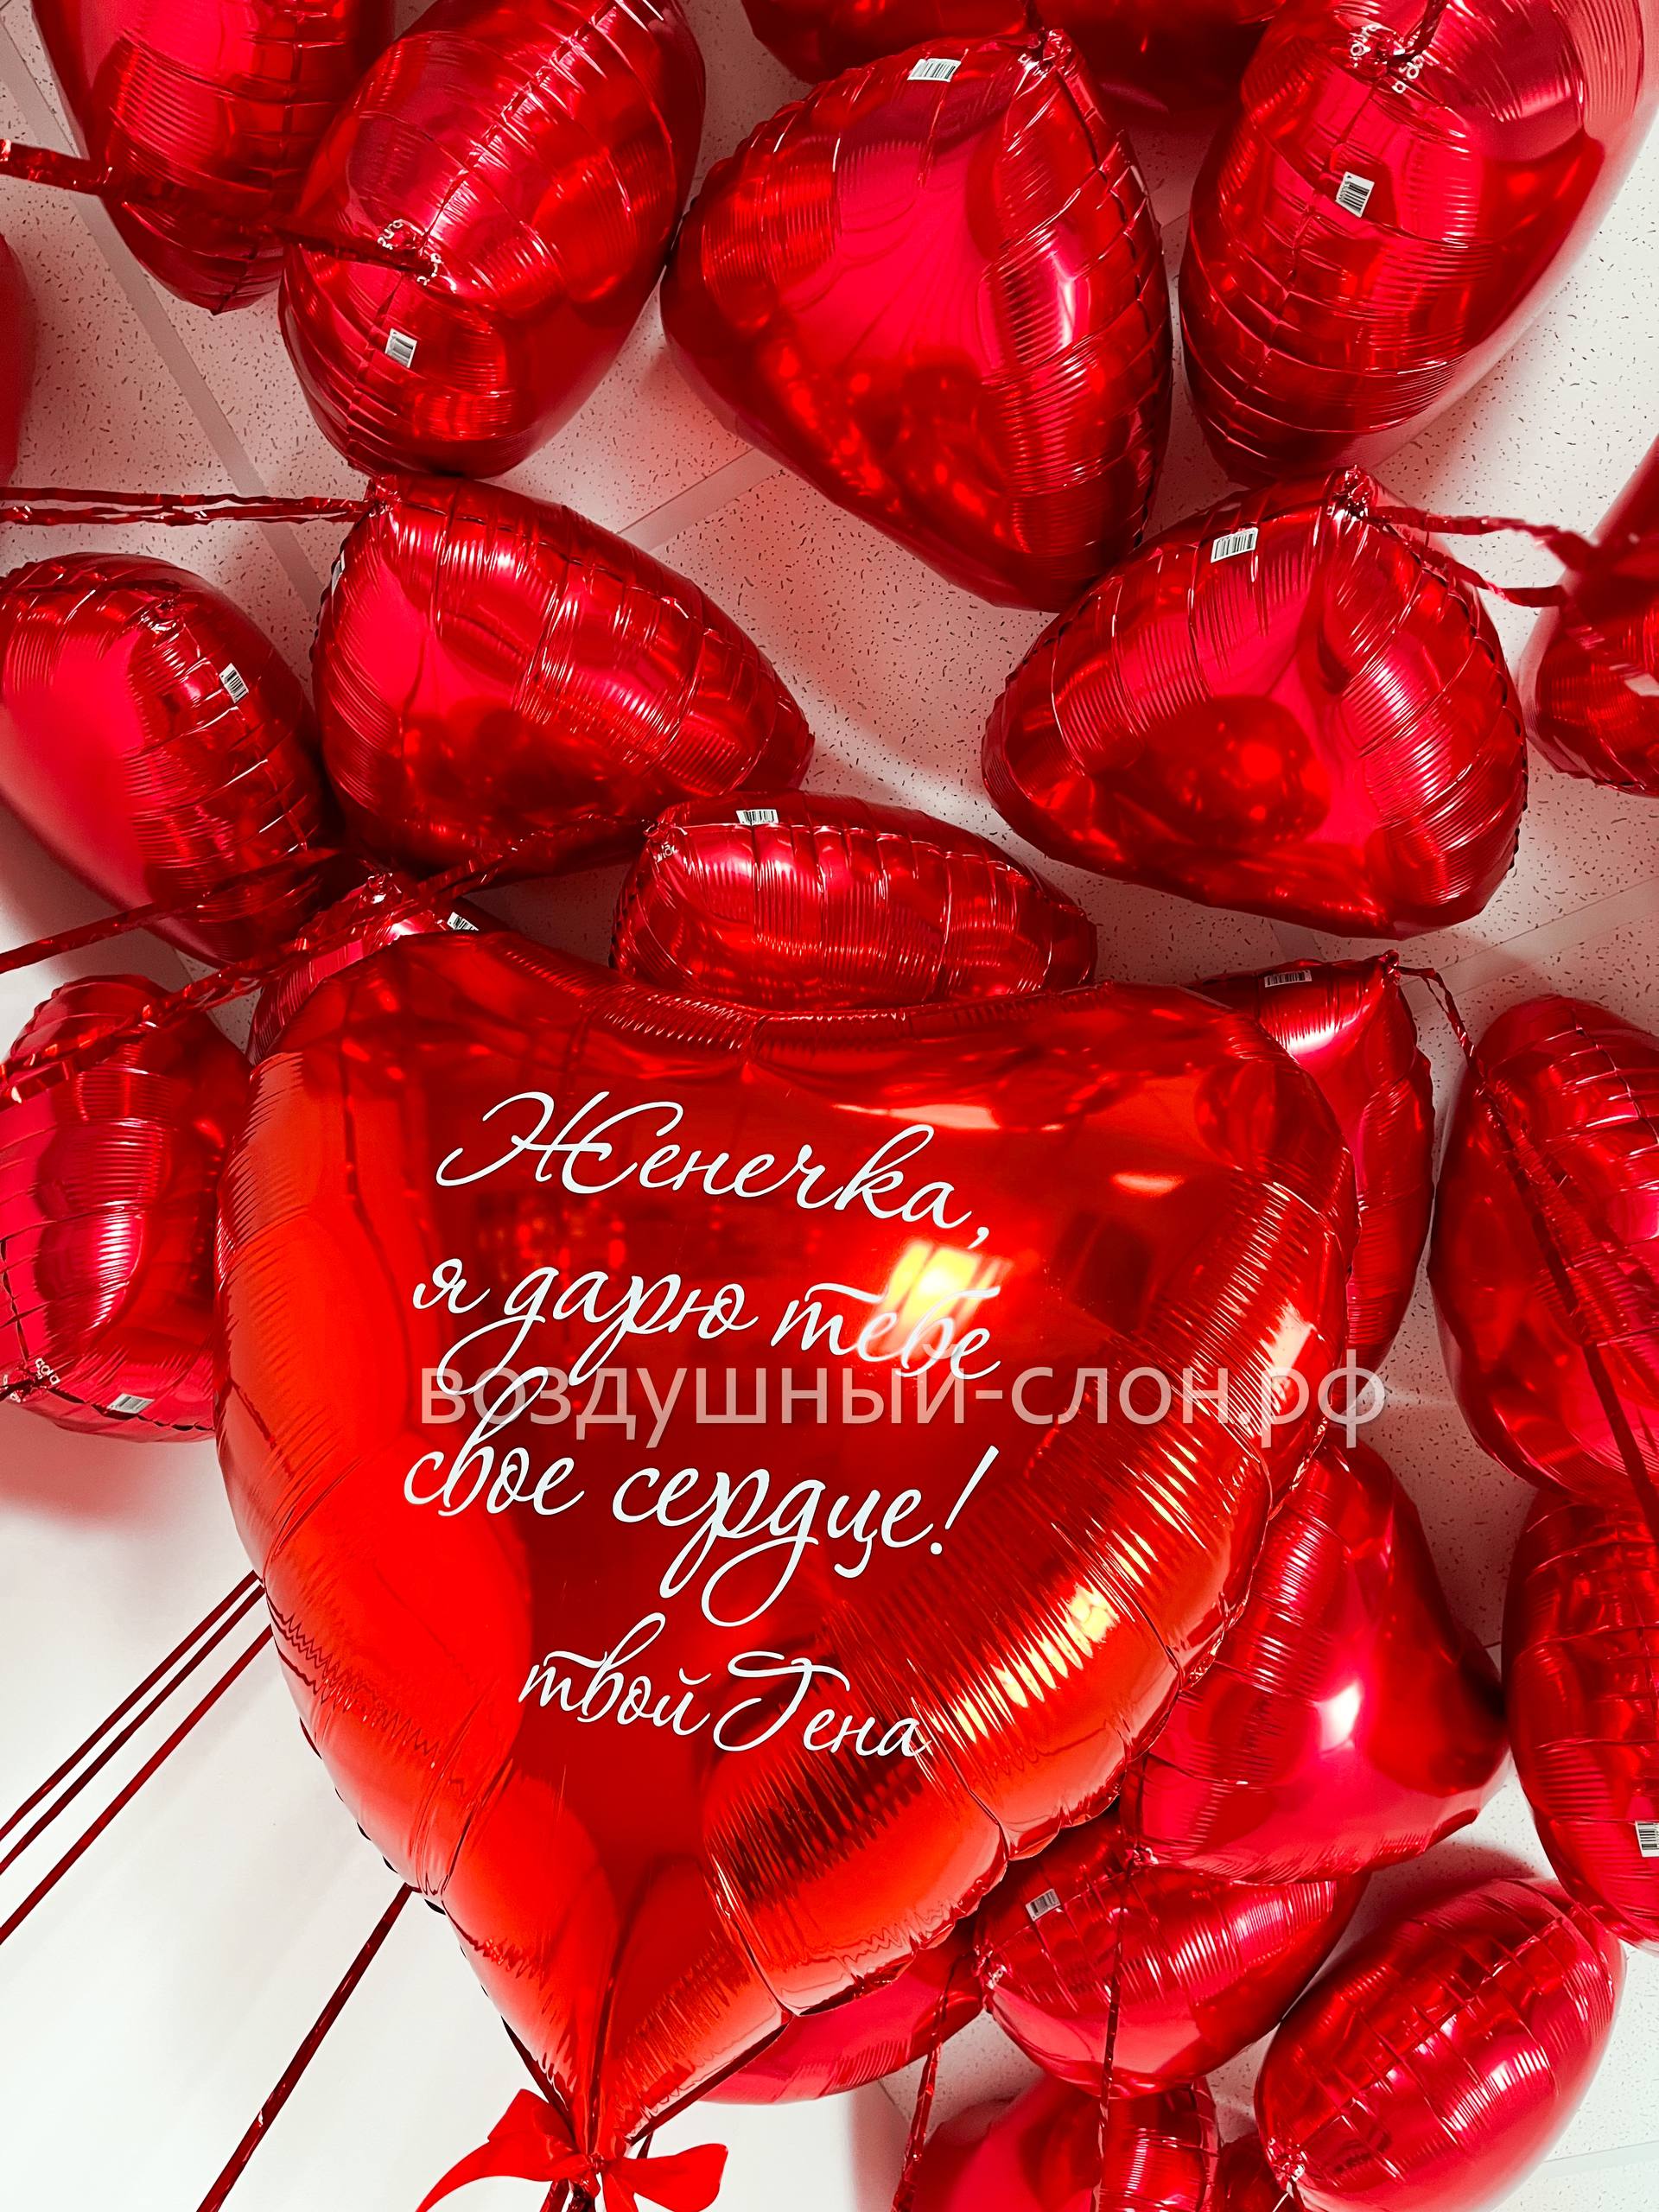 Женечка,
я дарю тебе
воздушный-слон.рф
свое сердце!
твой Гена